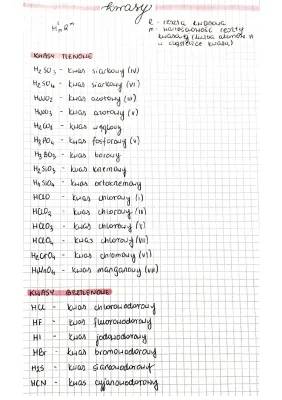 kwasy
HₙᴵRⁿ
R - reszta kwasowa
n - wartościowość reszty
kwasowej (liczba atomów H
w cząsteczce kwasu)
KWASY TLENOWE
H₂SO₃ - kwas siarkowy (IV)
H₂SO₄ - kwas siarkowy (VI)
HNO₂ - kwas azotowy (III)
HNO₃ - kwas azotowy (V)
H₂CO₃ - kwas węglowy
H₃PO₄ - kwas fosforowy (V)
H₃BO₃ - kwas borowy
H₂SiO₃ - kwas krzemowy
H₄SiO₄ - kwas ortokrzemowy
HClO - kwas chlorowy (I)
HClO₂ - kwas chlorowy (III)
HClO₃ - kwas chlorowy (V)
HClO₄ - kwas chlorowy (VII)
H₂CrO₄ - kwas chromowy (VI)
HMnO₄ - kwas manganowy (VII)
KWASY BEZTLENOWE
HCl - kwas chlorowodorowy
HF - kwas fluorowodorowy
HI - kwas jodowodorowy
HBr - kwas bromowodorowy
H₂S - kwas siarkowodorowy
HCN - kwas cyjanowodorowy